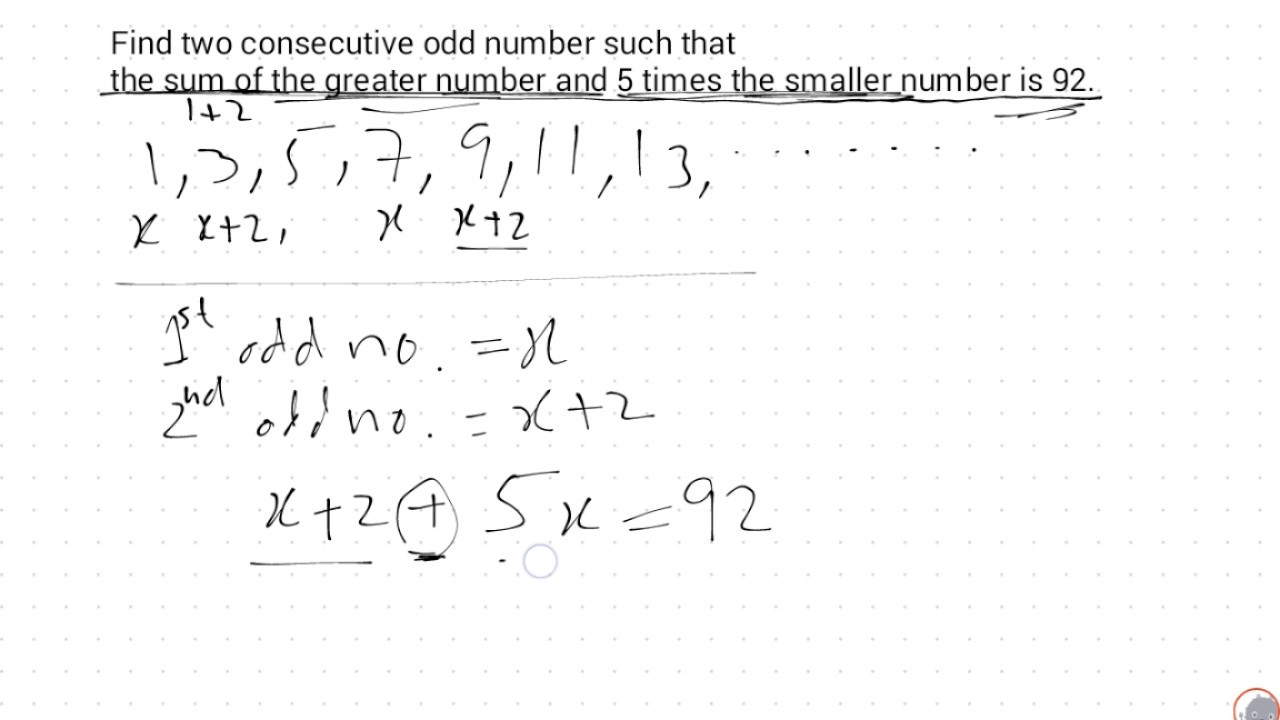 Find two consecutive odd number such that
the sum of the greater number and 5 times the smaller number is 92.
1+2
1, 3, 5, 7, 9, 11, 13, . . . . . . .
x x+2, x x+2
1st odd no. = x
2nd odd no. = x+2
x+2 + 5x = 92